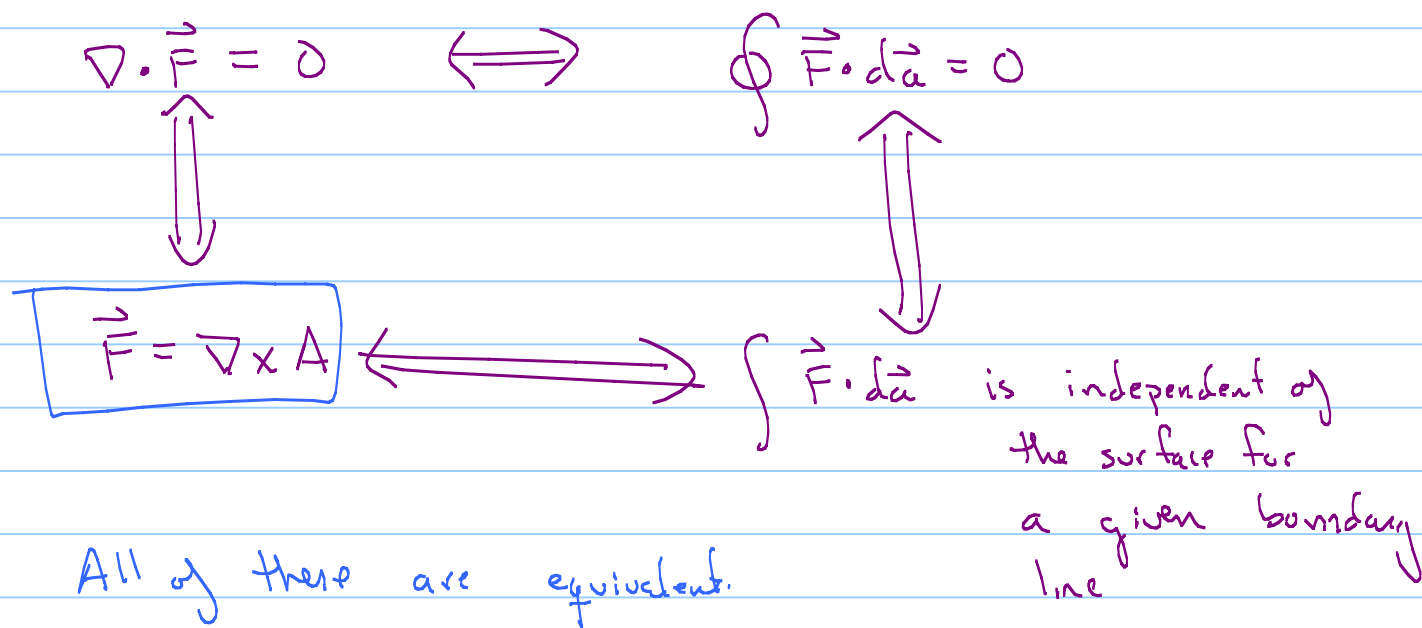 ∇·F⃗ = 0 ⟺ ∮ F⃗·da⃗ = 0
⇕ ⇕
F⃗ = ∇×A ⟺ ∫ F⃗·da⃗ is independent of
the surface for
a given boundary
line
All of these are equivalent.